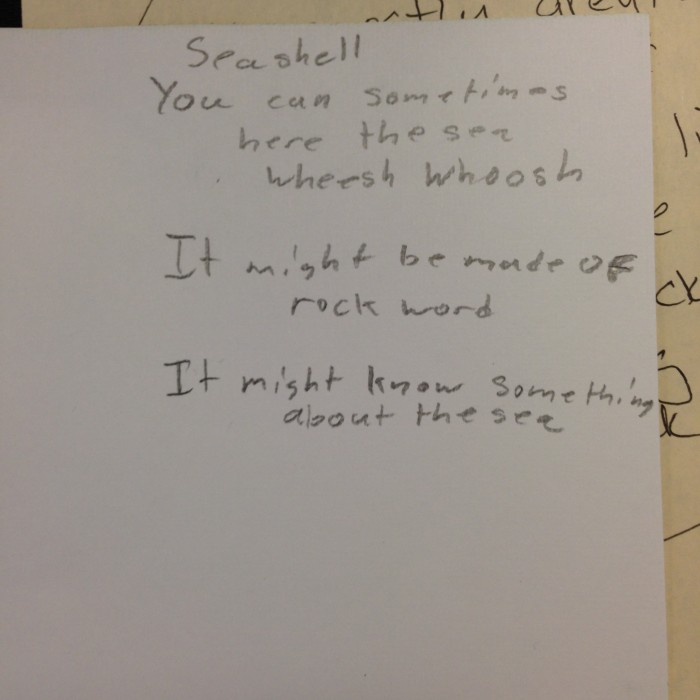 Seashell
You can sometimes
here the sea
wheesh whoosh
It might be made of
rock word
It might know something
about the sea